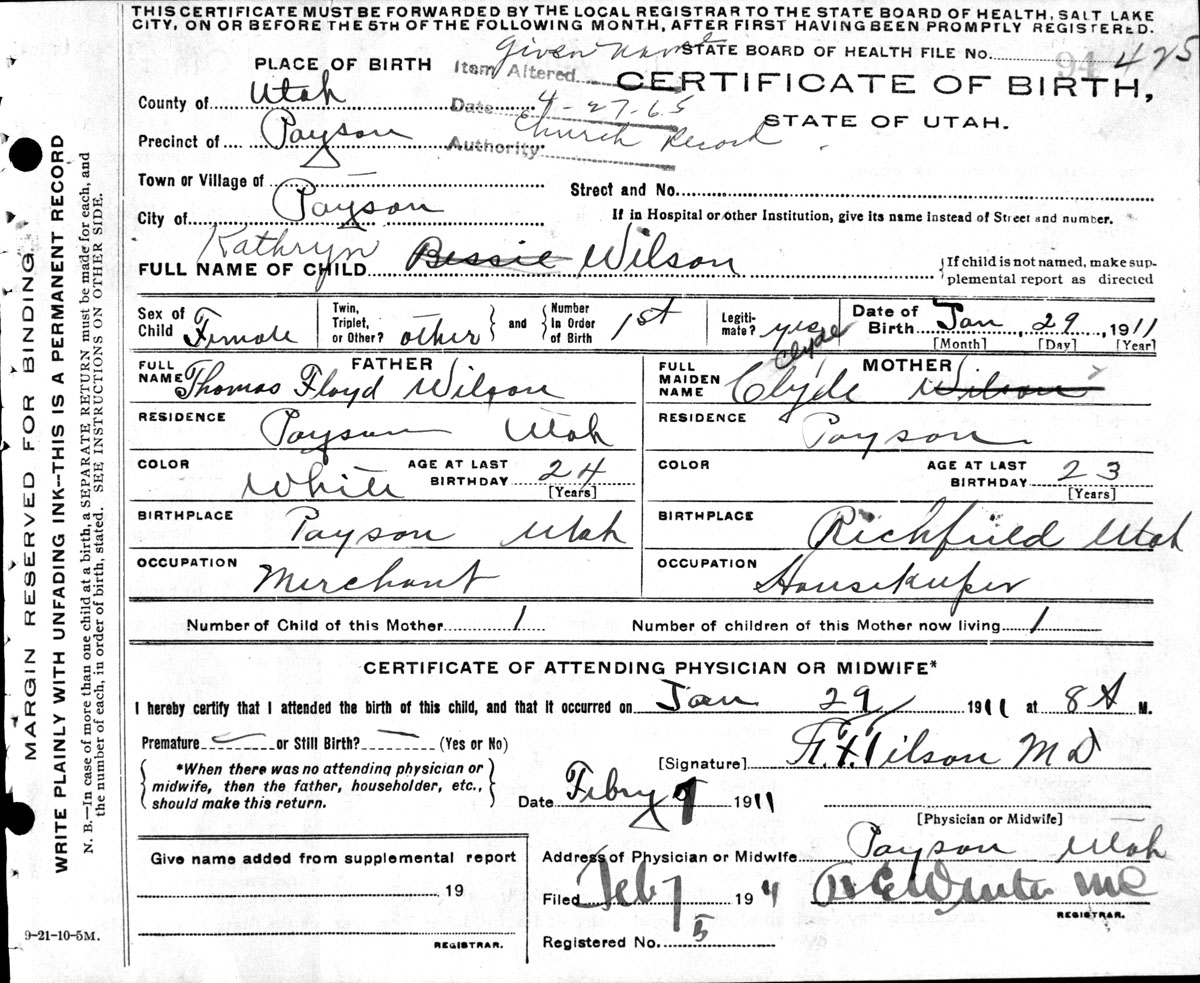 THIS CERTIFICATE MUST BE FORWARDED BY THE LOCAL REGISTRAR TO THE STATE BOARD OF HEALTH, SALT LAKE
CITY, ON OR BEFORE THE 5TH OF THE FOLLOWING MONTH, AFTER FIRST HAVING BEEN PROMPTLY REGISTERED.
STATE BOARD OF HEALTH FILE No. 94 425
PLACE OF BIRTH Item Altered Given Name
CERTIFICATE OF BIRTH,
County of Utah Date 4-27-65
STATE OF UTAH.
Precinct of Payson Authority Church Record
Town or Village of Street and No.
City of Payson If in Hospital or other Institution, give its name instead of Street and number.
Kathryn
FULL NAME OF CHILD Bessie Wilson If child is not named, make sup-
plemental report as directed
Sex of Child Female Twin, Triplet, or Other? other and Number In Order of Birth 1st Legiti-mate? yes Date of Birth Jan 29 1911
[Month] [Day] [Year]
FATHER
FULL NAME Thomas Floyd Wilson
RESIDENCE Payson Utah
COLOR White AGE AT LAST BIRTHDAY 24
[Years]
BIRTHPLACE Payson Utah
OCCUPATION Merchant
MOTHER
Clyde
FULL MAIDEN NAME Clyde Wilson
RESIDENCE Payson
COLOR AGE AT LAST BIRTHDAY 23
[Years]
BIRTHPLACE Richfield Utah
OCCUPATION Housekeeper
Number of Child of this Mother 1 Number of children of this Mother now living 1
CERTIFICATE OF ATTENDING PHYSICIAN OR MIDWIFE*
I hereby certify that I attended the birth of this child, and that it occurred on Jan 29 1911 at 8 A M.
Premature or Still Birth? (Yes or No)
*When there was no attending physician or
midwife, then the father, householder, etc.,
should make this return.
[Signature] Wilson MD
Date Febry 1911
[Physician or Midwife]
Give name added from supplemental report
19
REGISTRAR.
Address of Physician or Midwife Payson Utah
Filed Feb 7 19 11
REGISTRAR.
Registered No. 5
9-21-10-5M.
MARGIN RESERVED FOR BINDING.
WRITE PLAINLY WITH UNFADING INK--THIS IS A PERMANENT RECORD
N. B.—In case of more than one child at a birth, a SEPARATE RETURN must be made for each, and
the number of each, in order of birth, stated. SEE INSTRUCTIONS ON OTHER SIDE.